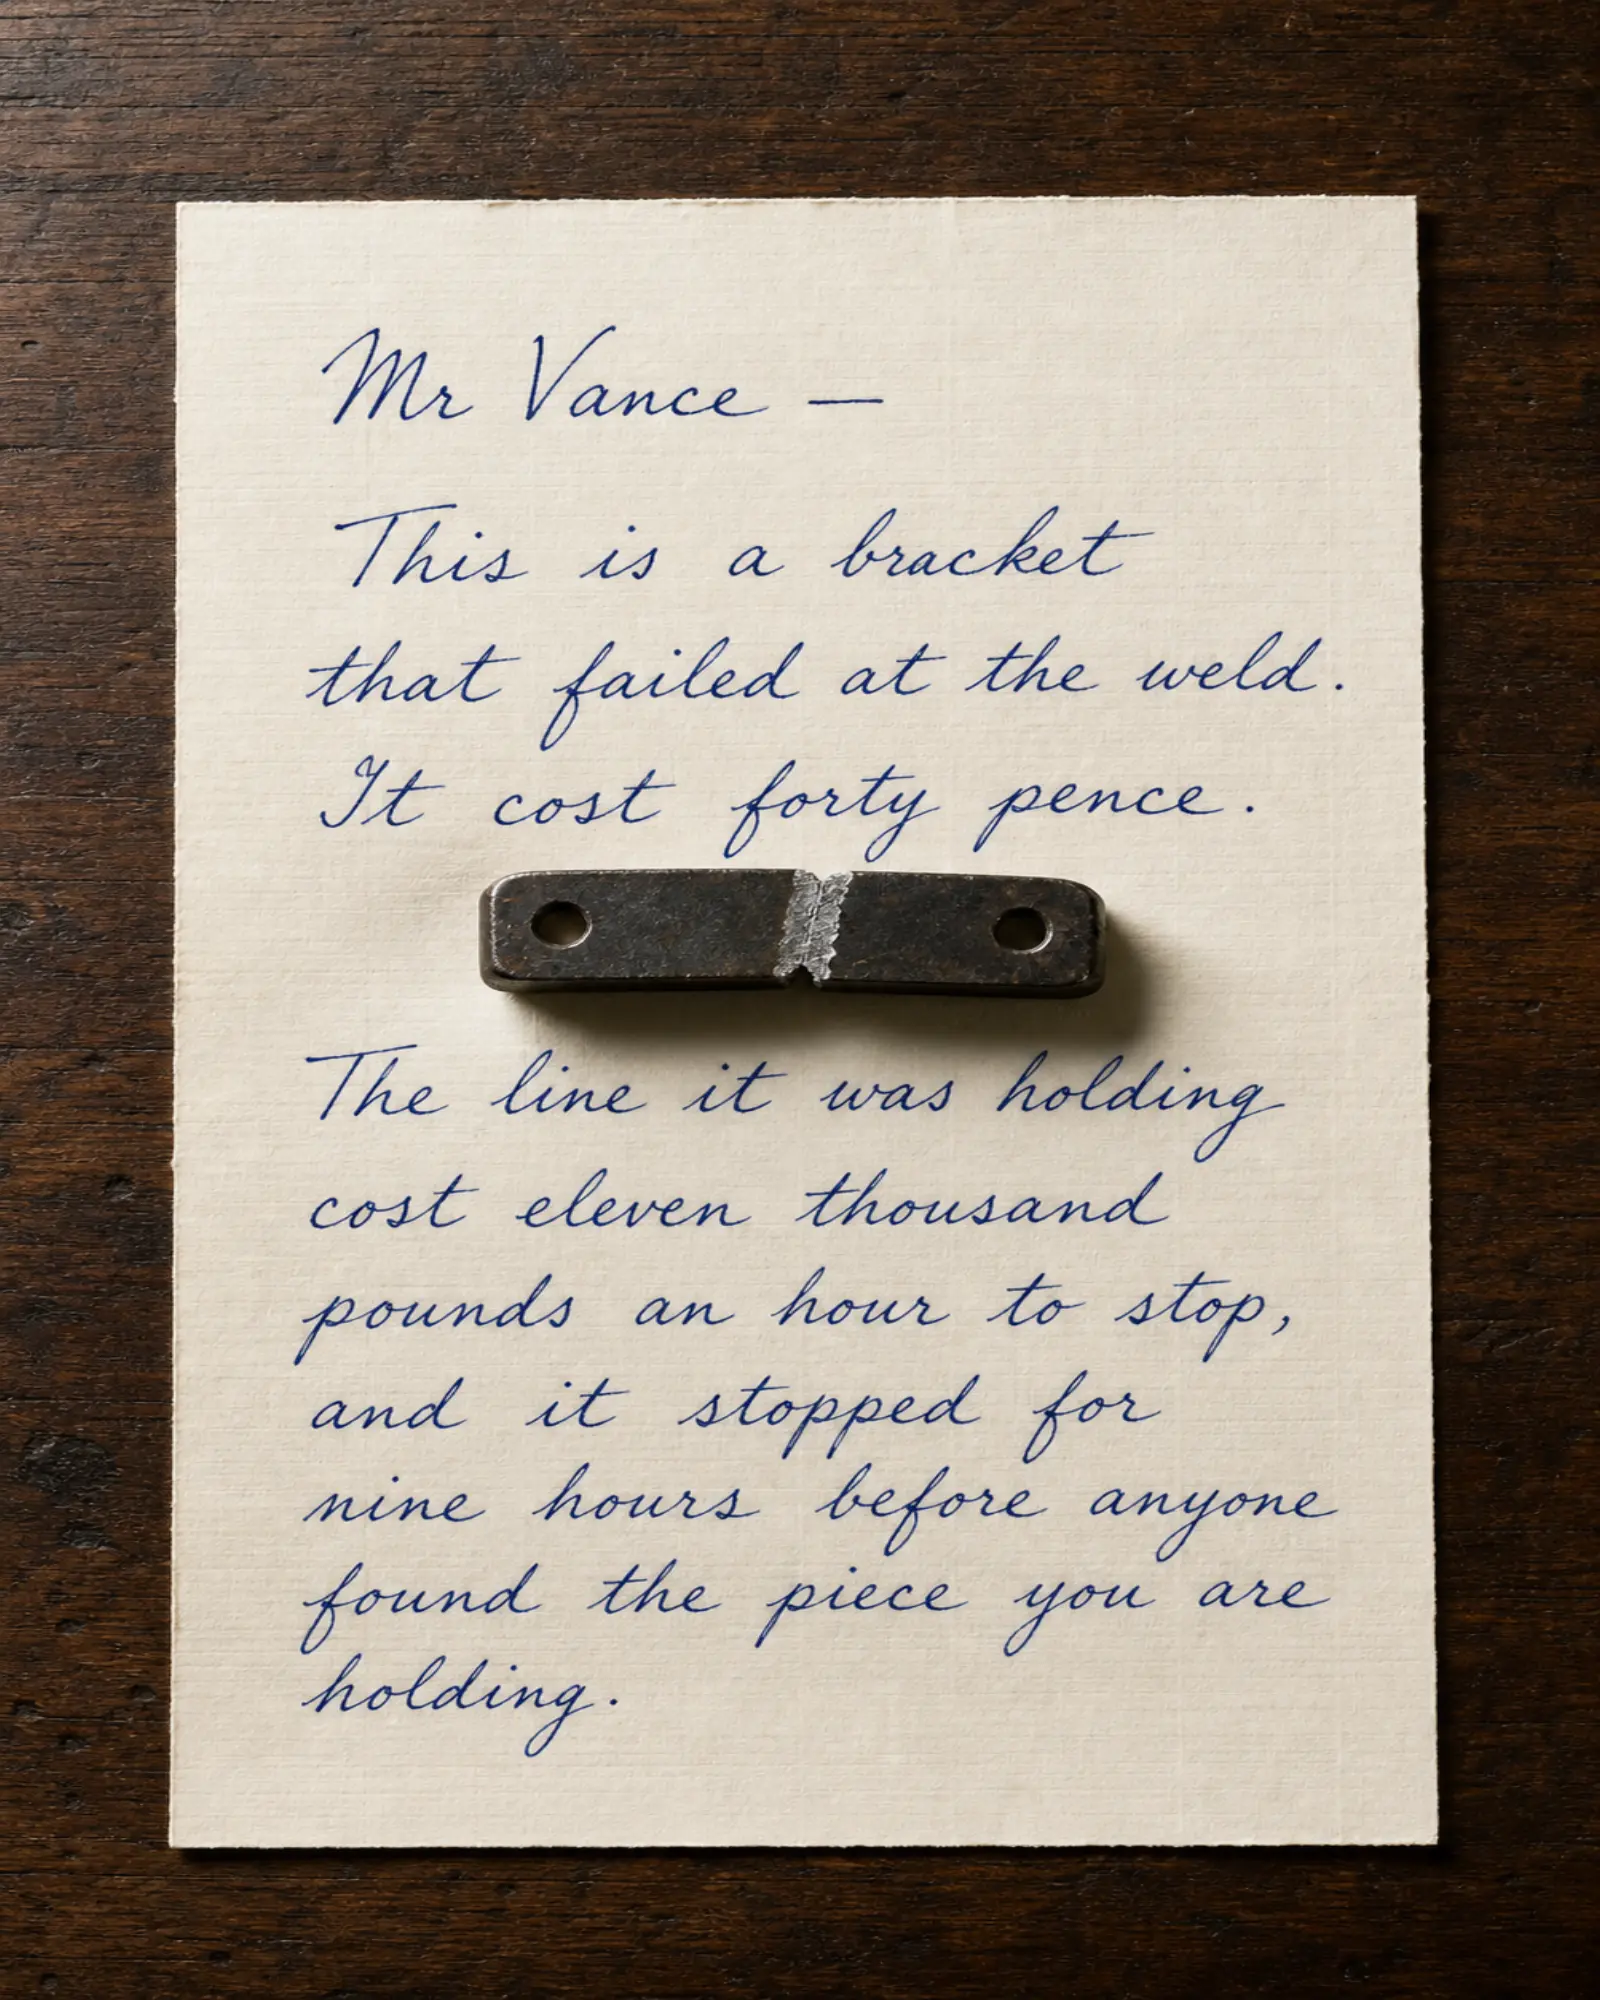 Mr Vance —
This is a bracket
that failed at the weld.
It cost forty pence.
The line it was holding
cost eleven thousand
pounds an hour to stop,
and it stopped for
nine hours before anyone
found the piece you are
holding.